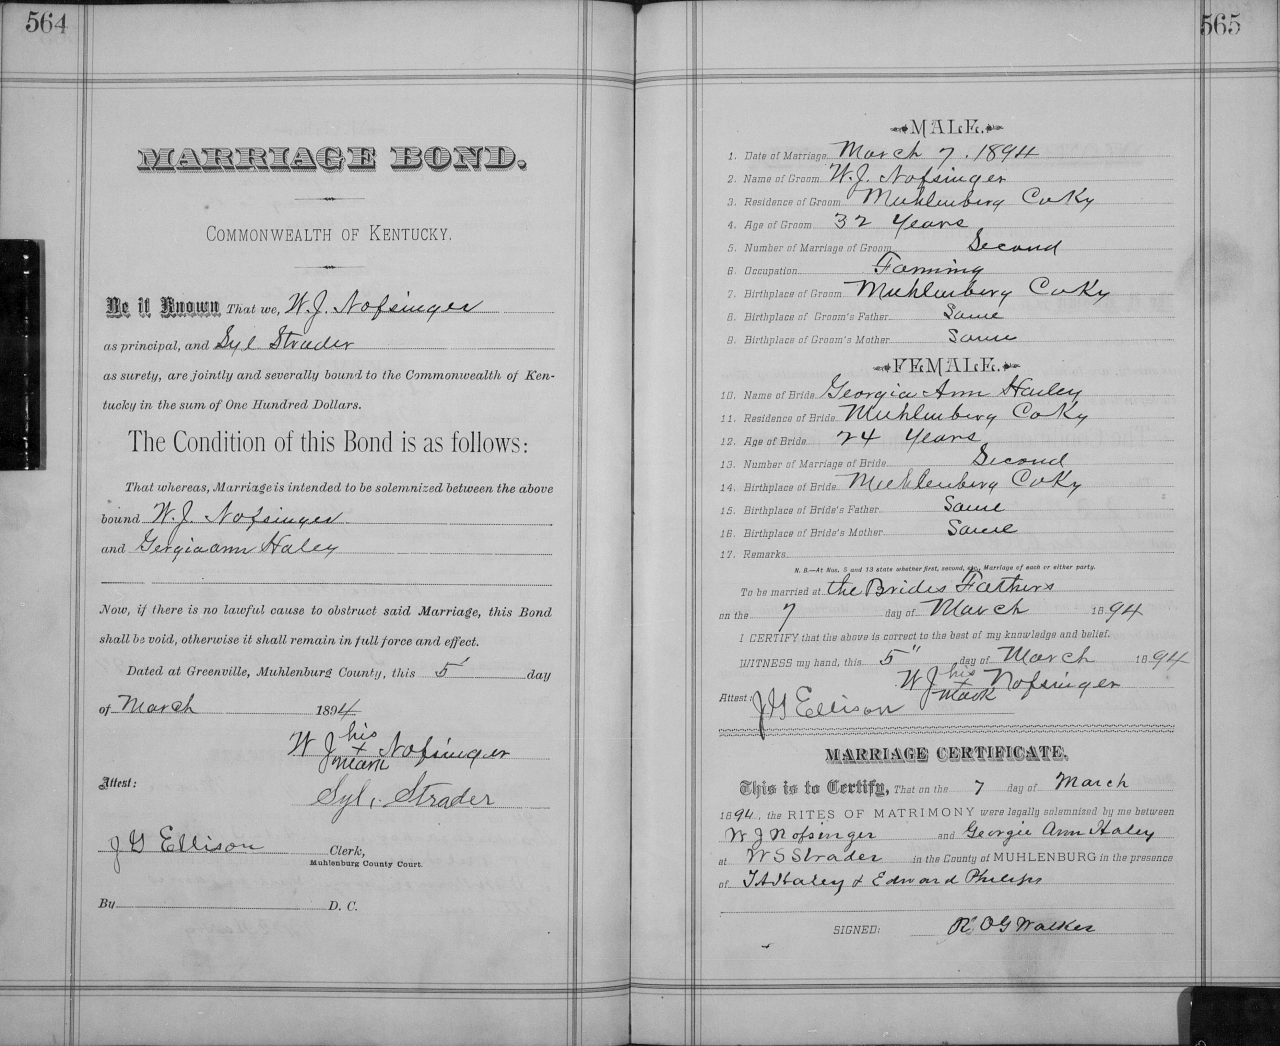 564
MARRIAGE BOND.
COMMONWEALTH OF KENTUCKY.
Be it Known That we, W. J. Nofsinger
as principal, and Syl Strader
as surety, are jointly and severally bound to the Commonwealth of Ken-
tucky in the sum of One Hundred Dollars.
The Condition of this Bond is as follows:
That whereas, Marriage is intended to be solemnized between the above
bound W. J. Nofsinger
and Gergia ann Haley
Now, if there is no lawful cause to obstruct said Marriage, this Bond
shall be void, otherwise it shall remain in full force and effect.
Dated at Greenville, Muhlenburg County, this 5" day
of March 1894
W J his x mark Nofsinger
Attest: Syl, Strader
J G Ellison Clerk,
Muhlenburg County Court.
By D. C.
565
MALE.
1. Date of Marriage March 7, 1894
2. Name of Groom W. J. Nofsinger
3. Residence of Groom Muhlenberg Co Ky
4. Age of Groom 32 Years
5. Number of Marriage of Groom Second
6. Occupation Farming
7. Birthplace of Groom Muhlenberg Co Ky
8. Birthplace of Groom's Father Same
9. Birthplace of Groom's Mother Same
FEMALE.
10. Name of Bride Georgia Ann Haley
11. Residence of Bride Muhlenberg Co Ky
12. Age of Bride 24 Years
13. Number of Marriage of Bride Second
14. Birthplace of Bride Muhlenberg Co Ky
15. Birthplace of Bride's Father Same
16. Birthplace of Bride's Mother Same
17. Remarks
N. B.—At Nos. 5 and 13 state whether first, second, etc., Marriage of each or either party.
To be married at the Brides Fathers
on the 7 day of March 1894
I CERTIFY that the above is correct to the best of my knowledge and belief.
WITNESS my hand, this 5" day of March 1894
W J his x mark Nofsinger
Attest: J G Ellison
MARRIAGE CERTIFICATE.
This is to Certify, That on the 7 day of March
1894, the RITES OF MATRIMONY were legally solemnized by me between
W J Nofsinger and Georgie Ann Haley
at W S Strader in the County of MUHLENBURG in the presence
of T A Haley & Edward Philips
SIGNED: R. O G Walker